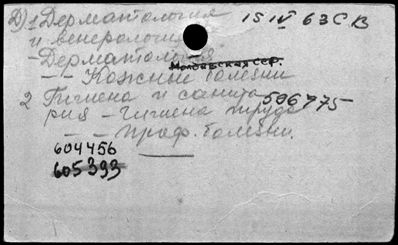 Д) 1 Дерматология 15 IV 63 СВ
и венерология
- Дерматология
Молдавская ССР.
- - Кожные болезни
2 Гигиена и санита 506775
рия - Гигиена труда
- - Проф. болезни.
604456
605393